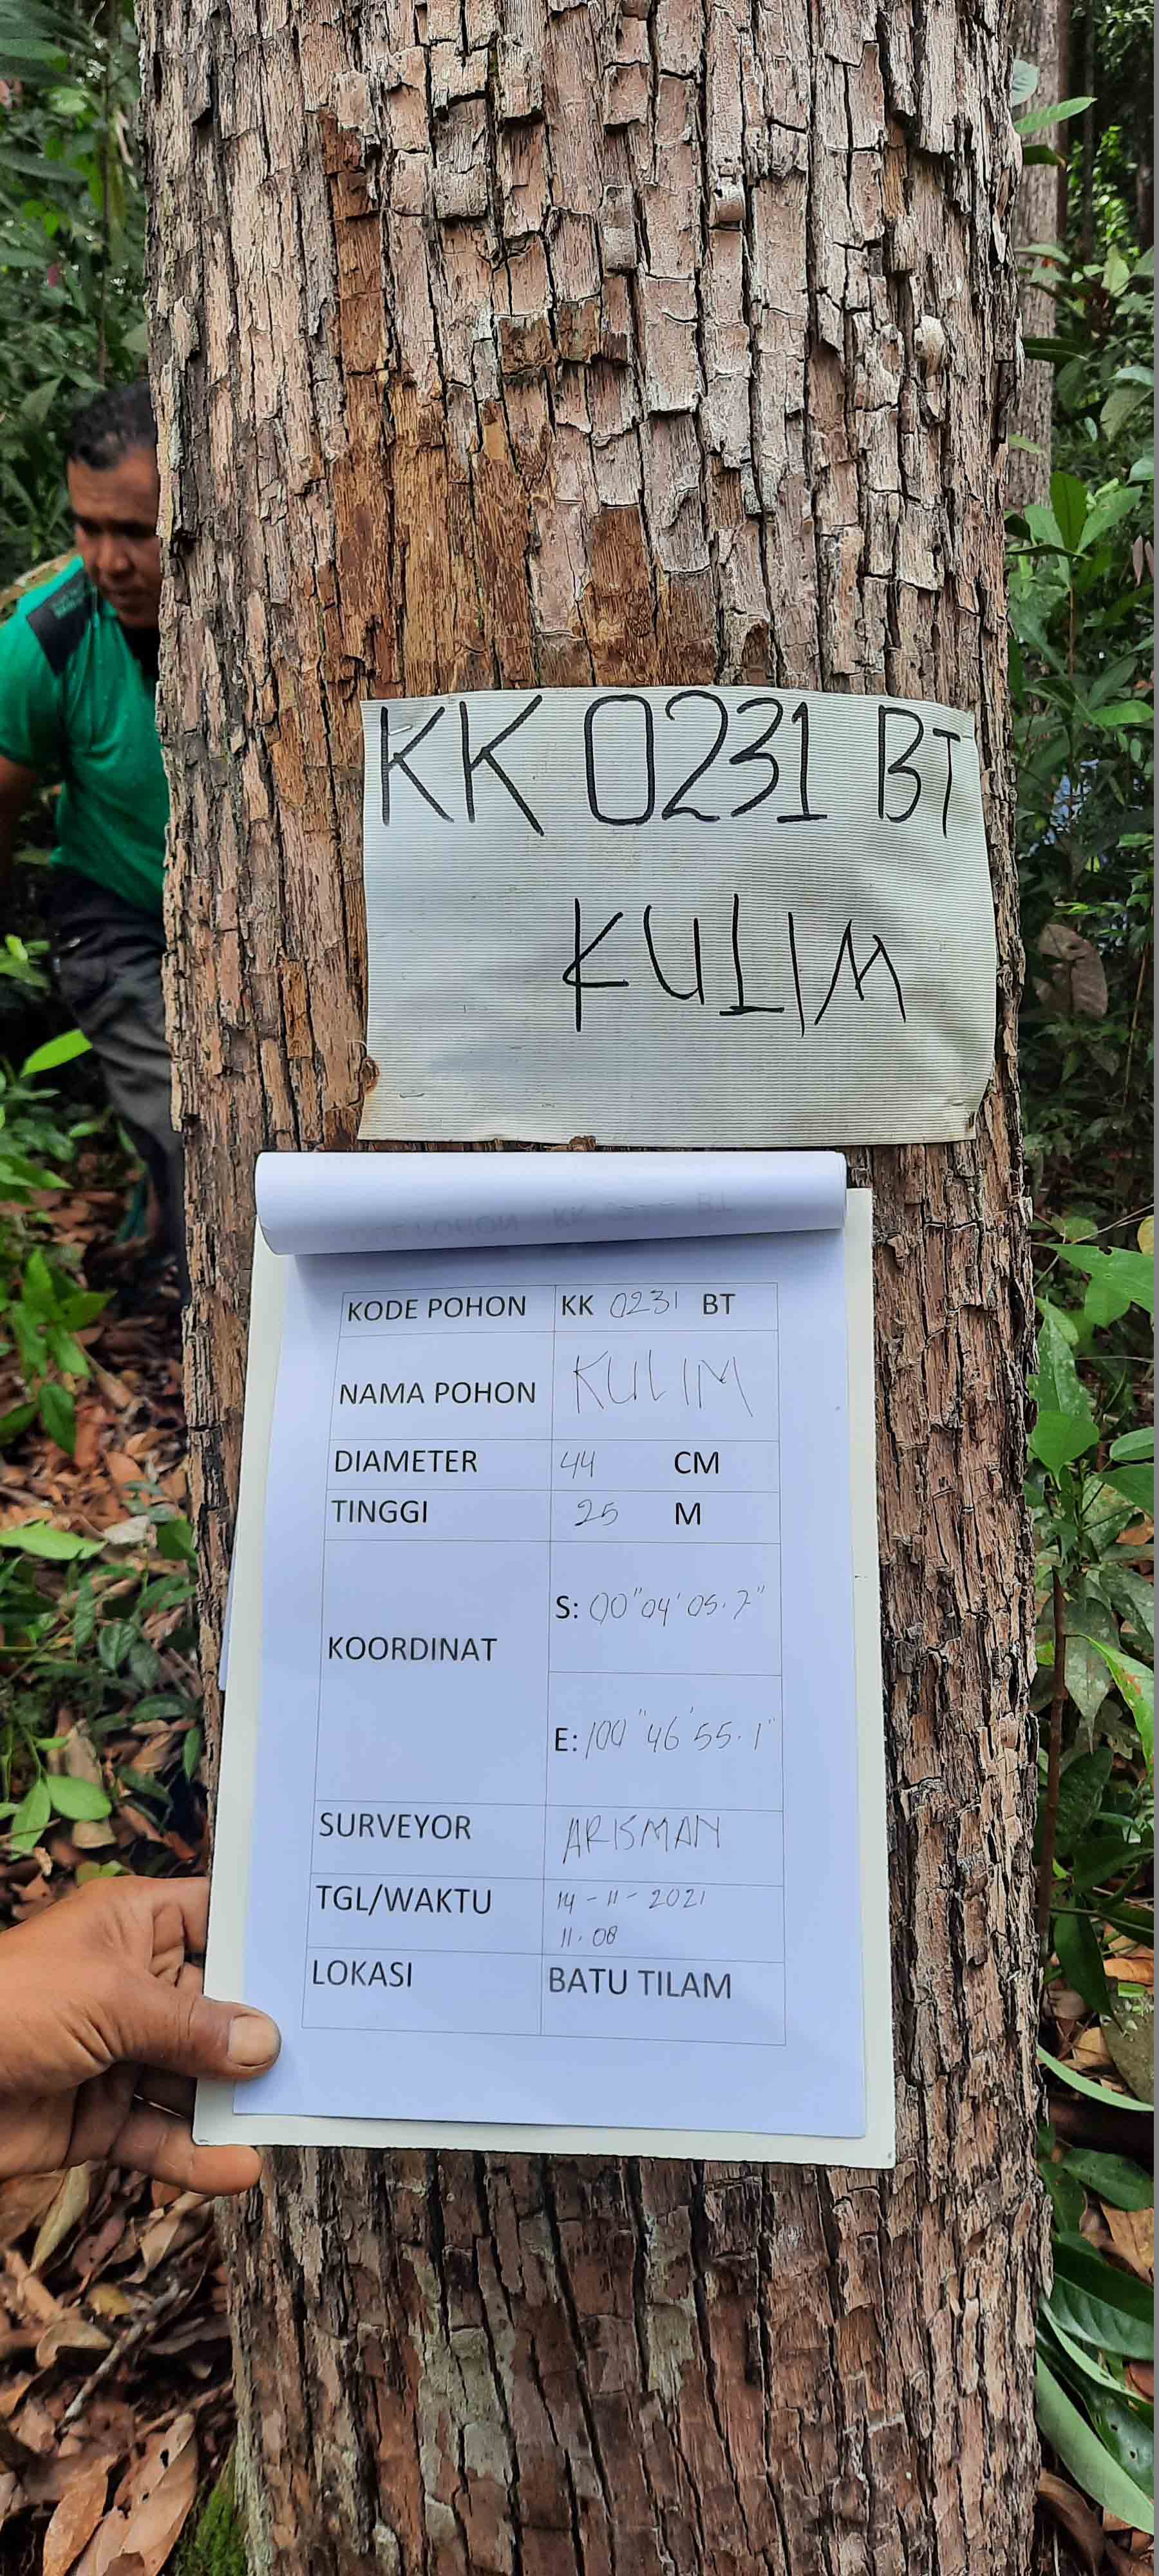 KK 0231 BT
KULIM
KODE POHON KK 0231 BT
NAMA POHON KULIM
DIAMETER 44 CM
TINGGI 25 M
KOORDINAT
S: 00"04'05.7"
E: 100"46'55.1"
SURVEYOR ARISMAN
TGL/WAKTU 14-11-2021
11.08
LOKASI BATU TILAM